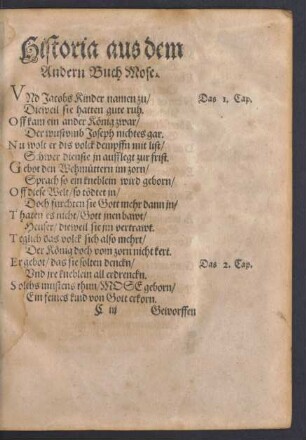 Historia aus dem
Andern Buch Mose.
VNd Jacobs Kinder namen zu/ Das 1. Cap.
Dieweil sie hatten gute ruh.
Offt kam ein ander König zwar/
Der wust umb Joseph nichtes gar.
Nu wolt er dis volck dempffn mit list/
Schwer dienste jn aufflegt zur frist.
Gebot den Wehmüttern im zorn/
Sprach so ein kneblem wird geborn/
Off diese Welt/ so tödtet in/
Doch furchten sie Gott mehr dann jn/
Thaten es nicht/ Gott jnen bawt/
Heuser/ dieweil sie jm vertrawt.
Teglich das volck sich also mehrt/
Der König doch vom zorn nicht kert.
Er gebot/ das sie solten denckn/ Das 2. Cap.
Und jre kneblem all erdrenckn.
Solchs mustens thun/ MOSE geborn/
Ein feines kind von Gott erkorn.
C iij Geworffen